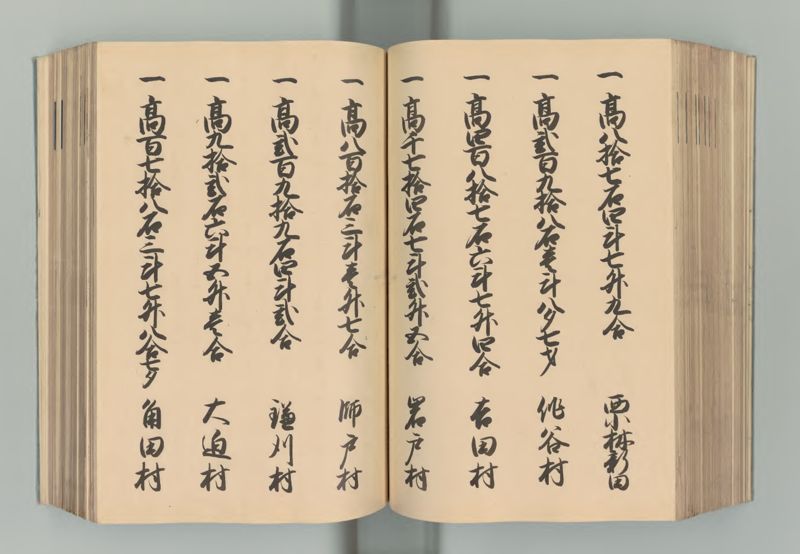 一 高八拾七石四斗七升九合 西小林新田
一 高弐百九拾八石壱斗八夕七才 作谷村
一 高四百八拾七石六斗七升四合 吉田村
一 高千七拾四石七斗弐升五合 岩戸村
一 高八百拾石三斗壱升七合 師戸村
一 高弐百九拾九石四斗弐合 鎌刈村
一 高九拾弐石六斗五升壱合 大廻村
一 高百七拾八石三斗七升八合七夕 角田村